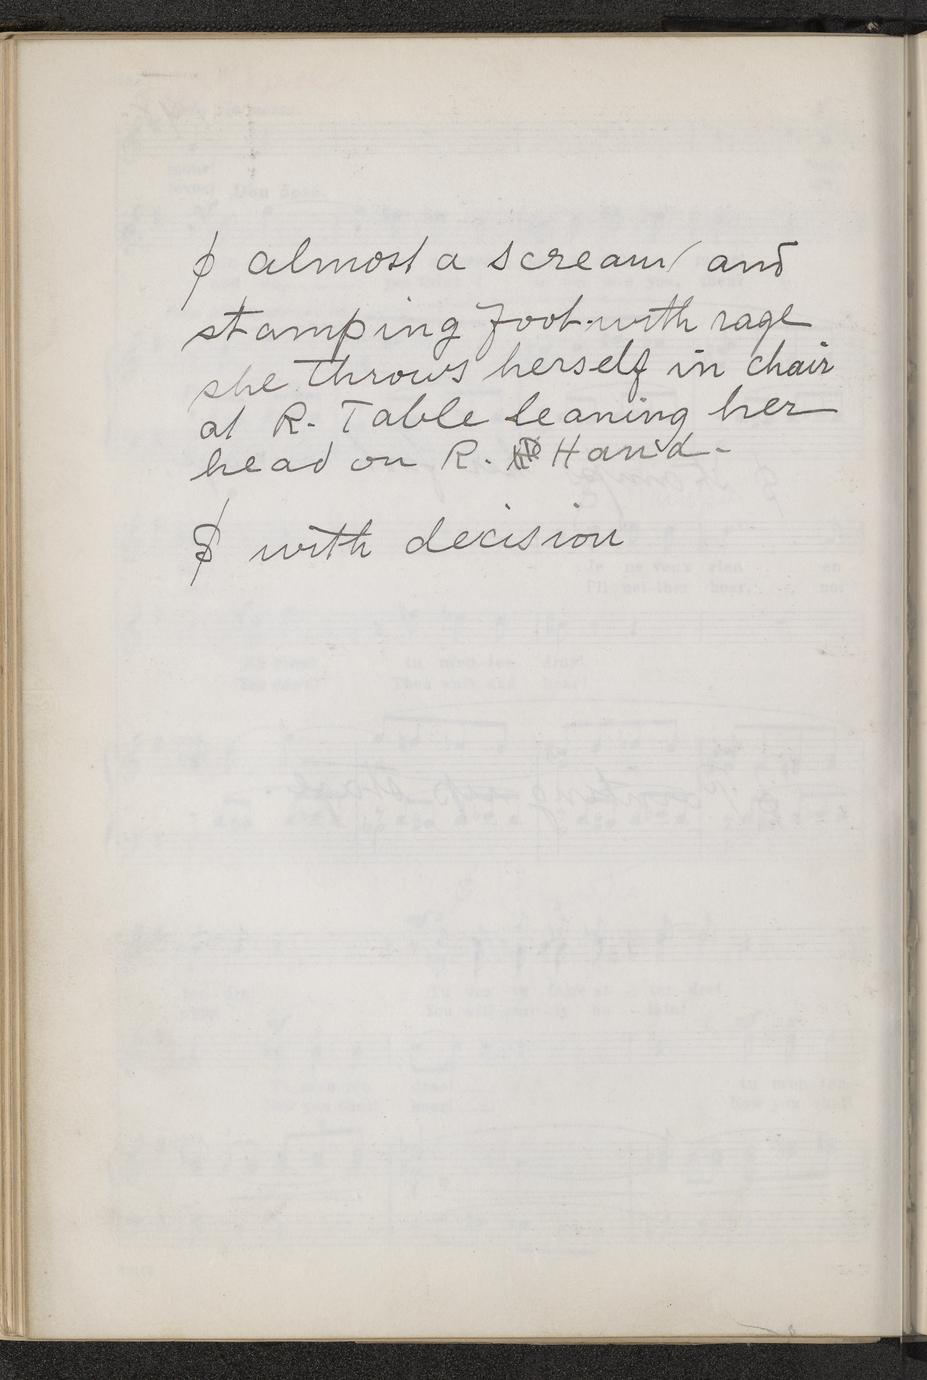 ϕ almost a scream/ and
stamping foot-with rage
she throws herself in chair
at R. Table leaning her
head on R. Hand-
ϕ with decision